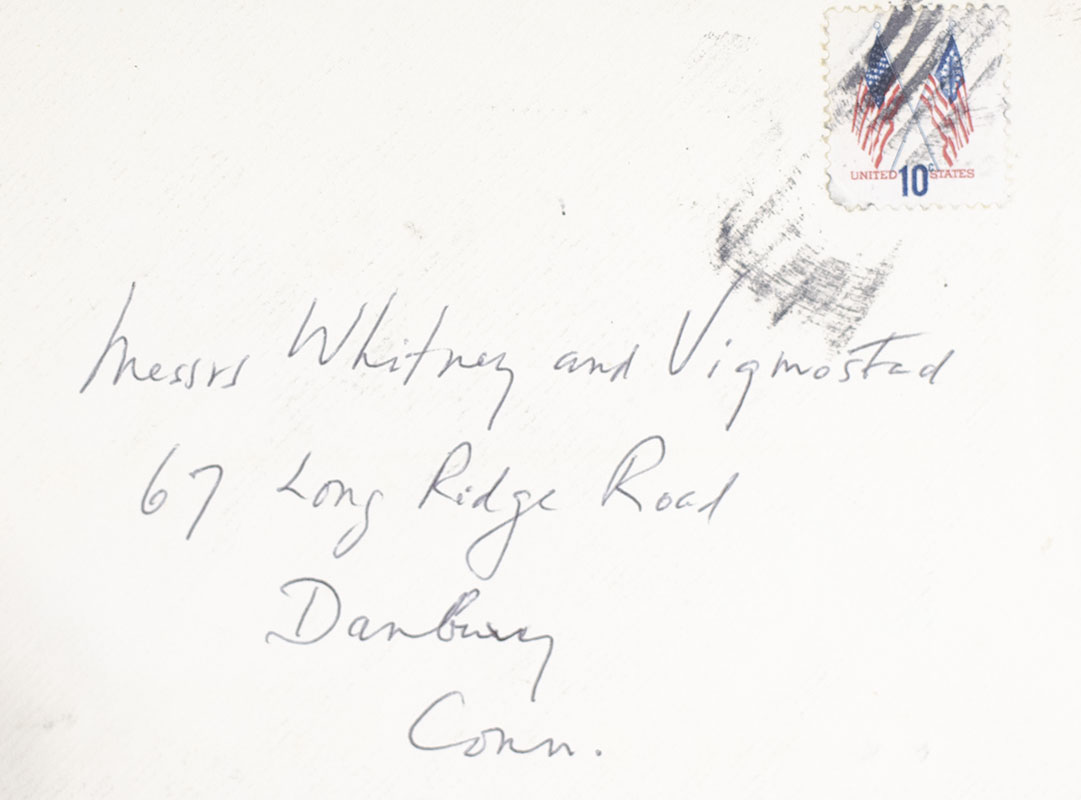 UNITED 10c STATES
Messrs Whitney and Vigmostad
67 Long Ridge Road
Danbury
Conn.